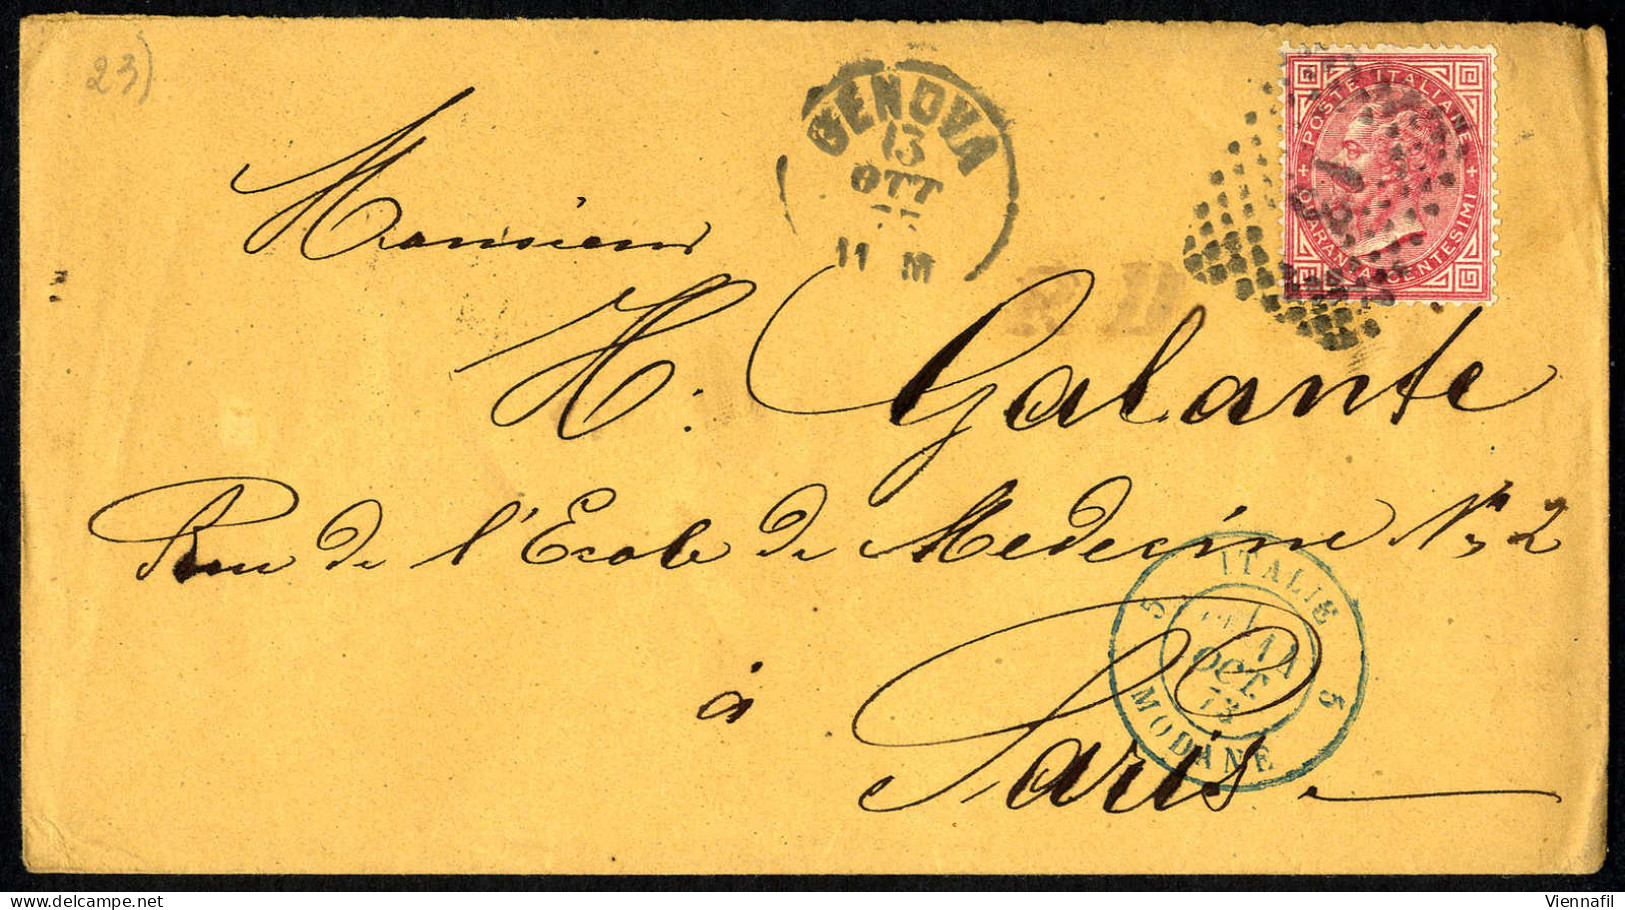 23)
GENOVA
13
OTT
11 M
POSTE ITALIANE
QUARANTA CENTESIMI
P.D.
Monsieur
H. Galante
Rue de l'Ecole de Medecine No 2
à Paris
ITALIE
5 5
14
OCT.
73
MODANE
Viennafil